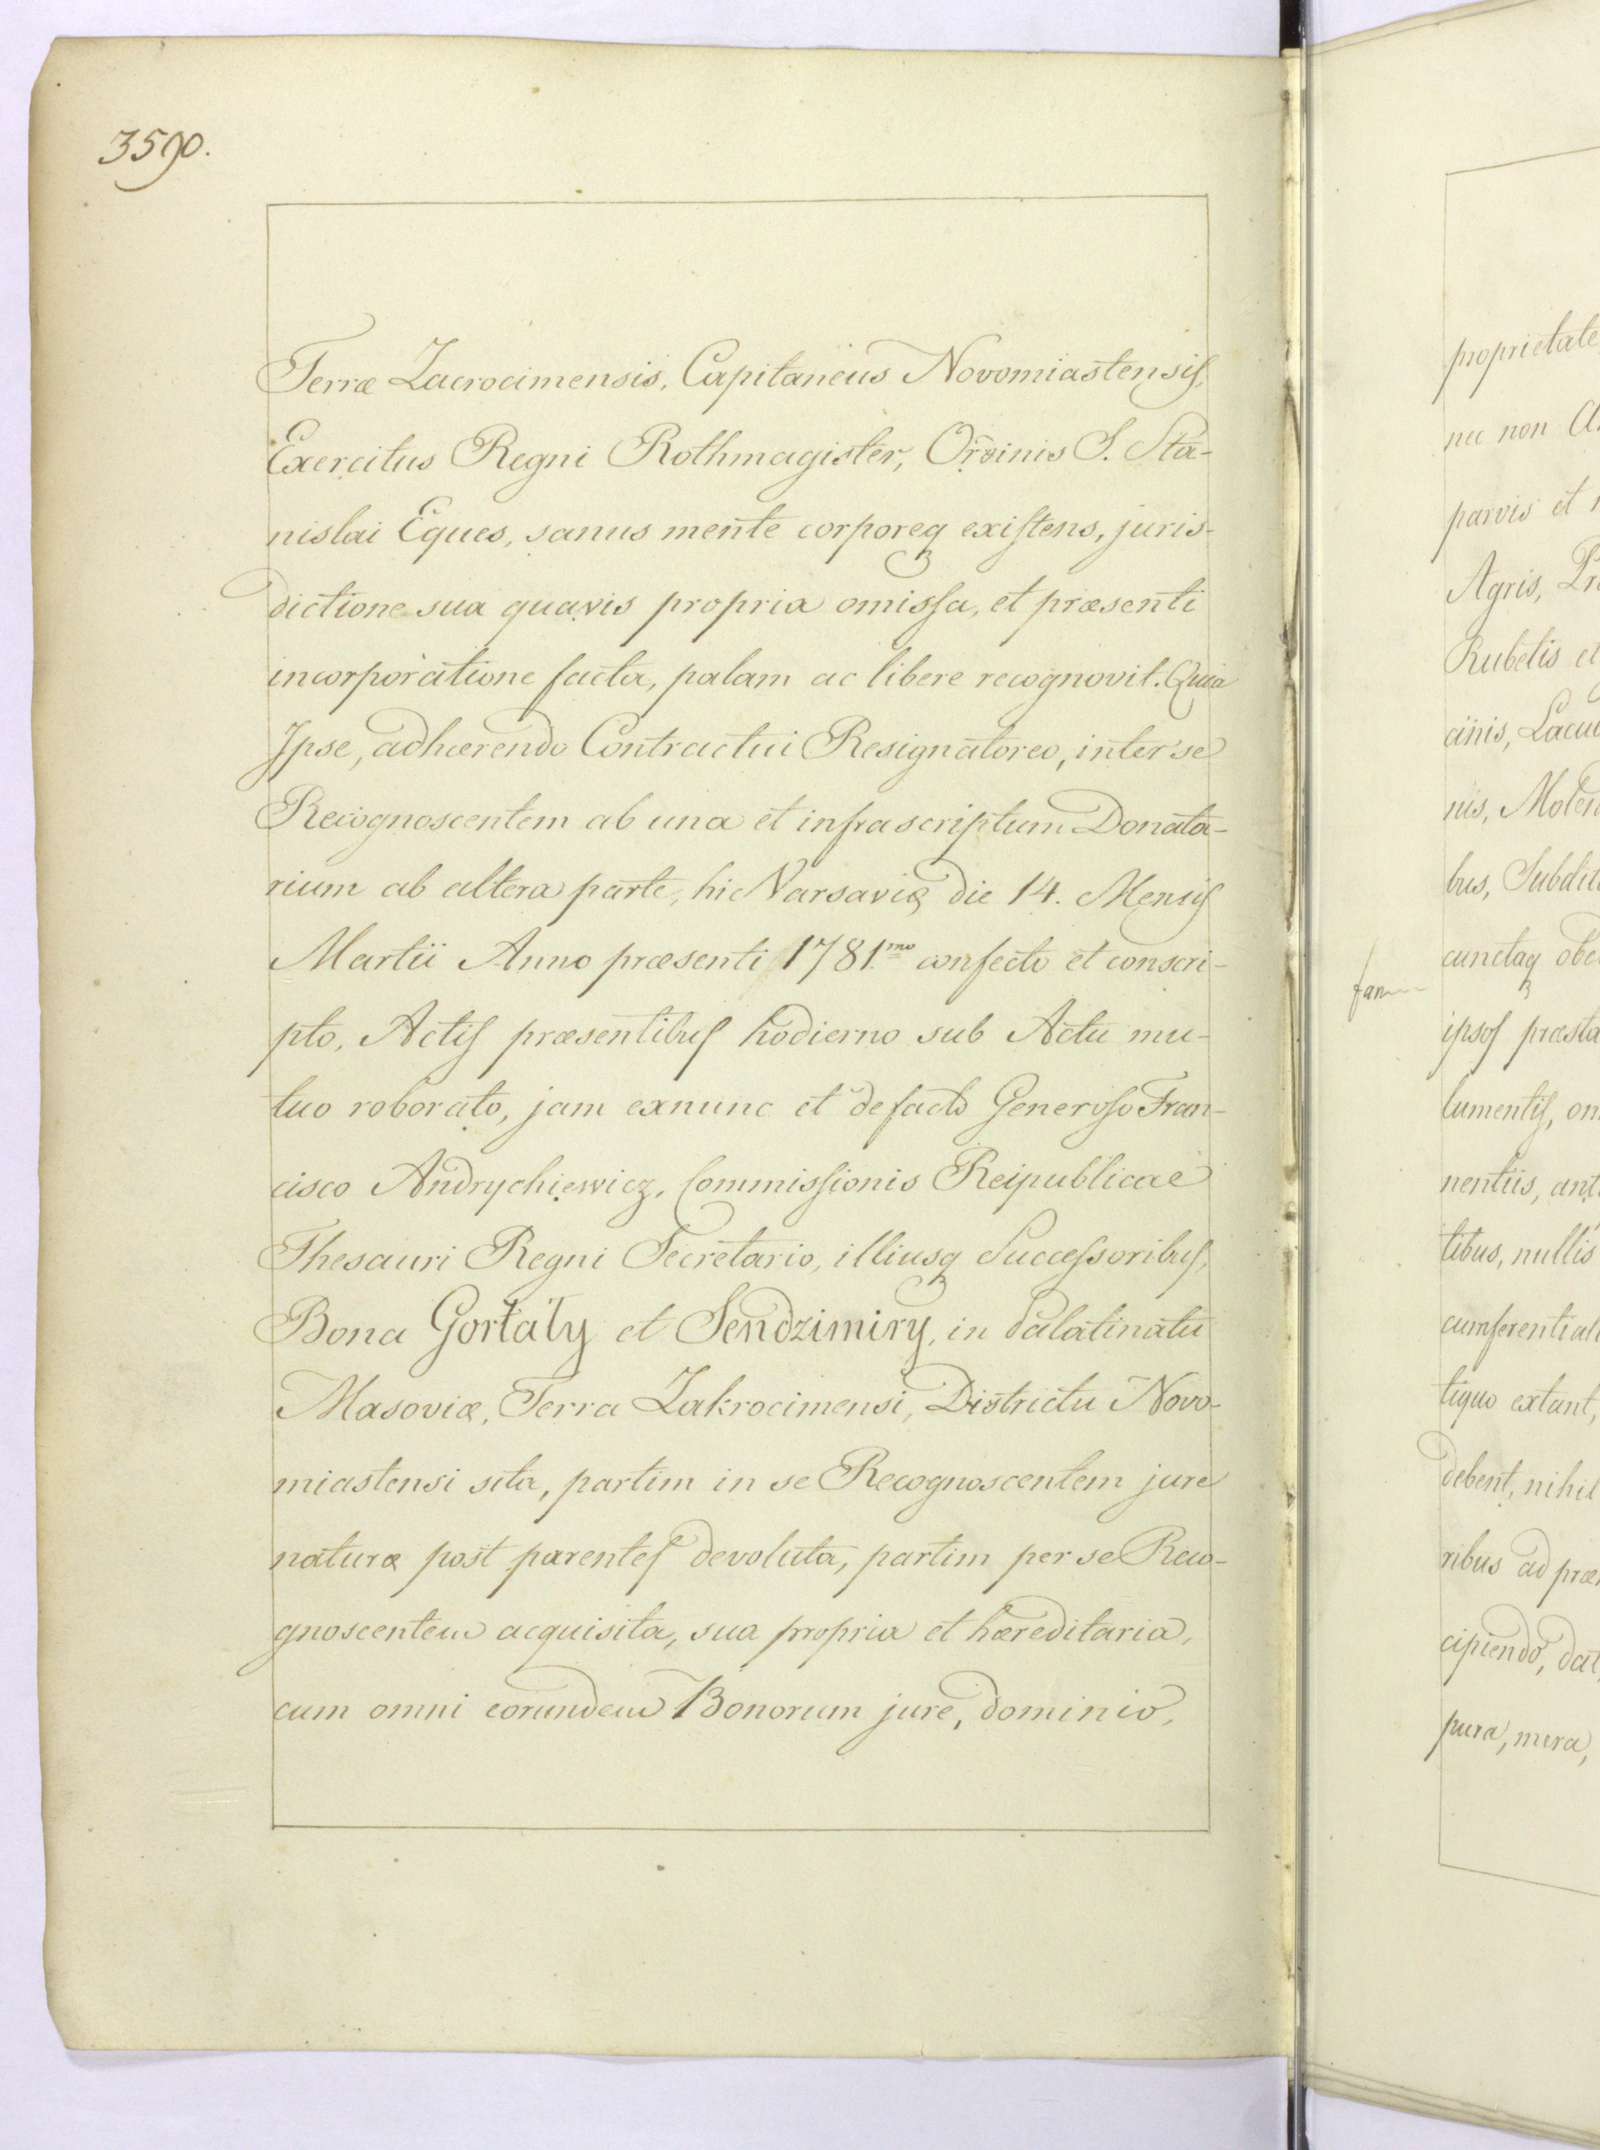 3590.
Terræ Zacrocimensis, Capitaneus Novomiastensis,
Exercitus Regni Rothmagister, Ordinis S. Sta-
nislai Eques, sanus mente corporeq existens, juris-
dictione sua quavis propria omissa, et præsenti
incorporatione facta, palam ac libere recognovit. Quia
Ipse, adhærendo Contractui Resignatoreo, inter se
Recognoscentem ab una et infrascriptum Donata-
rium ab altera parte, hic Varsaviæ die 14. Mensis
Martii Anno præsenti 1781.mo confecto et conscri-
pto, Actis præsentibus hodierno sub Actu mu-
tuo roborato, jam exnunc et defacto Generoso Fran-
cisco Andrychiewicz, Commissionis Reipublicae
Thesauri Regni Secretario, illiusq Successoribus,
Bona Gortaty et Sendzimiry, in Palatinatu
Masoviæ, Terra Zakrocimensi, Districtu Novo-
miastensi sita, partim in se Recognoscentem jure
naturæ post parentes devoluta, partim per se Reco-
gnoscentem acquisita, sua propria et hæreditaria,
cum omni eorundem Bonorum jure, dominio,
proprietate
nec non
parvis et
Agris,
Rubetis et
nis,
bus,
cunctaq
ipsos
lumentis,
nentiis,
tibus, nullis
tiquo extant,
debent, nihil
ribus ad
cipiendo,
pura, mera,